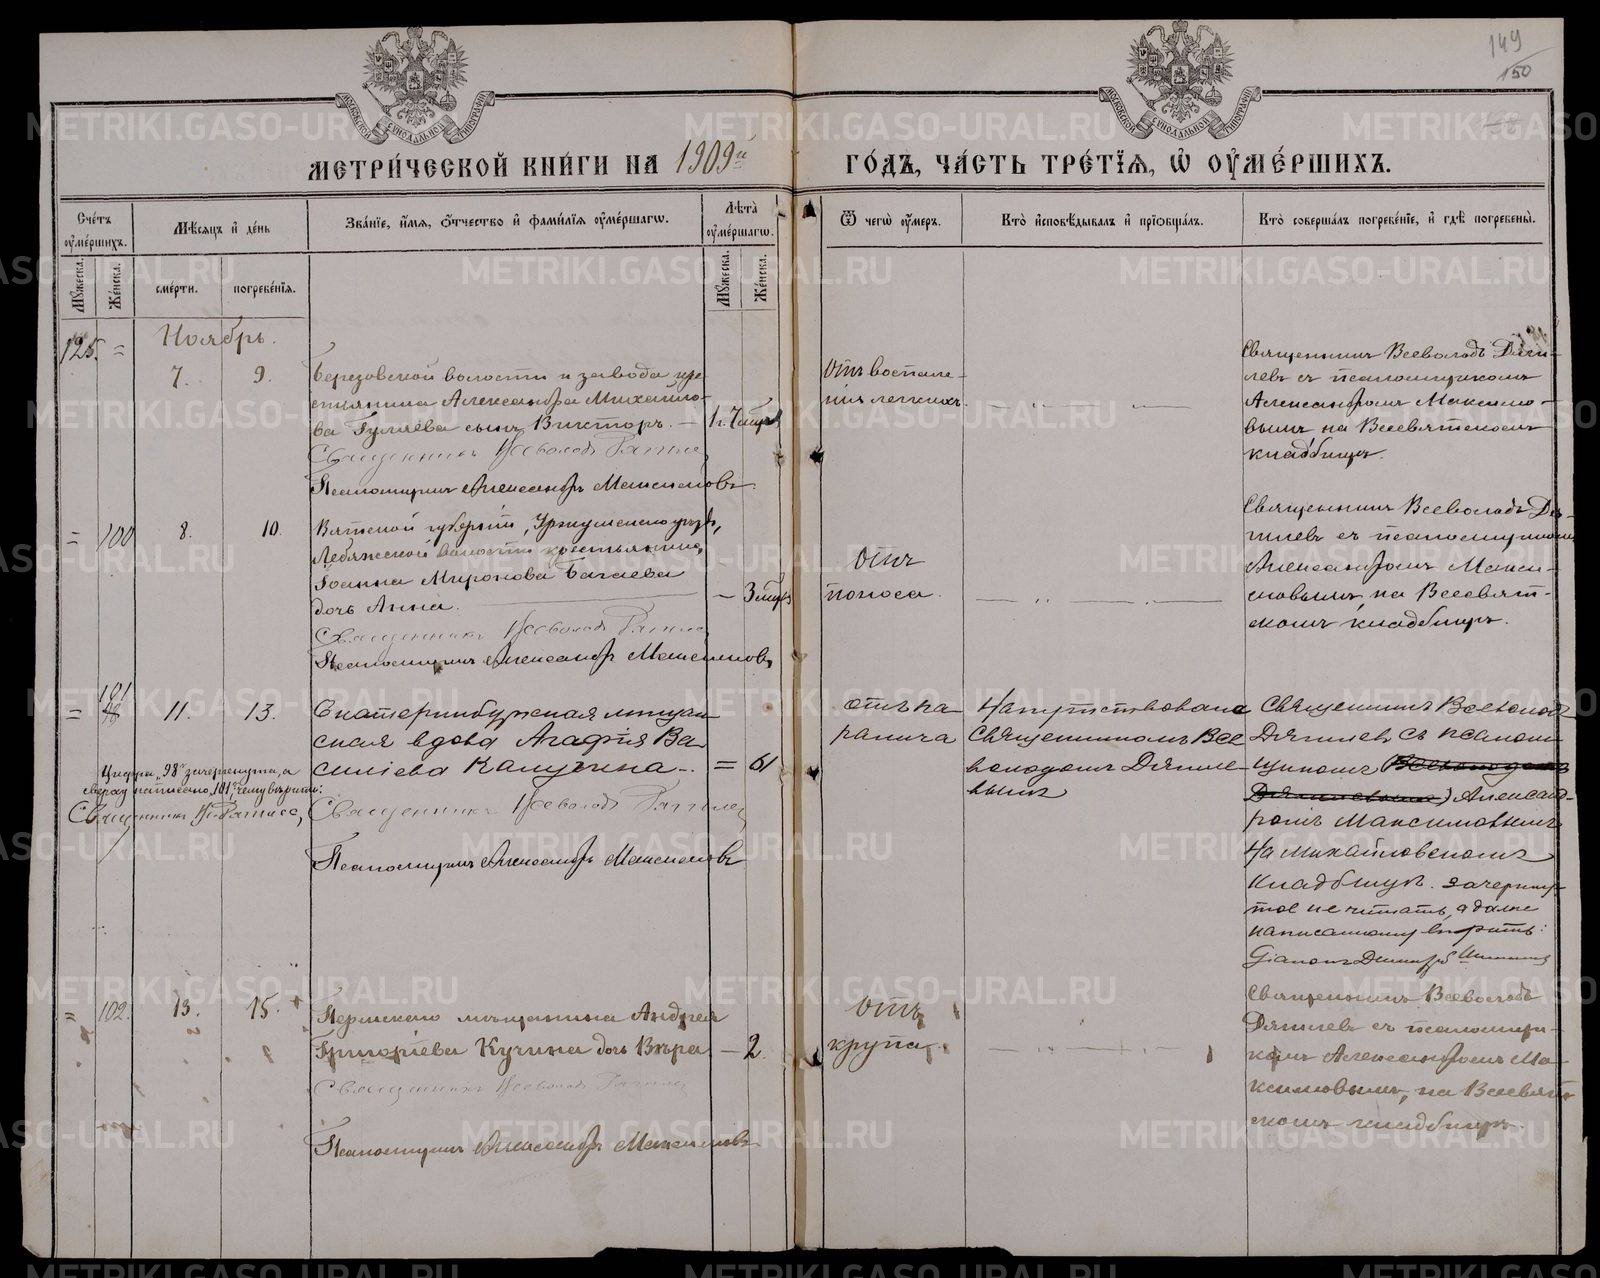 149
150
МЕТРИ́ЧЕСКОЙ КНИ́ГИ НА 1909й ГО́ДЪ, ЧА́СТЬ ТРЕ́ТІЯ, Ѡ ОУМЕ́РШИХЪ.
Сче́тъ оуме́ршихъ.
Му́жеска.
Же́нска.
Мѣ́сяцъ и де́нь
сме́рти.
погребе́нїя.
Зва́нїе, и́мя, о́тчество и фами́лїя оуме́ршагѡ.
Лѣ́та оуме́ршагѡ.
Му́жеска.
Же́нска.
Ѿ чегѡ̀ оу́меръ.
Кто̀ исповѣ́дывалъ и прїѡбща́лъ.
Кто̀ соверша́лъ погребе́нїе, и гдѣ̀ погребены̀.
Ноябрь.
125. =
7. 9.
Березовской волости и завода кре-
стьянина Александра Михайло-
ва Гуляева сынъ Викторъ. —
1 г. 7 мѣс
Священникъ Всеволодъ
Псаломщикъ Александръ Максимовъ
Отъ воспале-
нія легкихъ.
Священникъ Всеволодъ Дяги-
левъ съ псаломщикомъ
Александромъ Максимо-
вымъ на Всесвятскомъ
кладбищѣ.
= 100 8. 10.
Вятской губерніи, Уржумскаго уѣзда,
Лебяжской волости крестьянина
Іоанна Миронова Багаева
дочь Анна.
— 3 мѣс
Священникъ Всеволодъ
Псаломщикъ Александръ Максимовъ
Отъ
поноса.
Священникъ Всеволодъ Дя-
гилевъ съ псаломщикомъ
Александромъ Макси-
мовымъ, на Всесвят-
скомъ кладбищѣ.
101
= 98 11. 13.
Екатеринбургская мѣщан-
ская вдова Агафія Ва-
силіева Калугина —
= 61
Цифра „98“ зачеркнута, а
сверху написано „101“, чему вѣрить:
Священникъ
Священникъ Всеволодъ
Псаломщикъ Александръ Максимовъ
отъ па-
ралича
Напутствована
Священникомъ Все
володомъ Дягиле-
вымъ
Священникъ Всеволодъ
Дягилевъ съ псалом-
щикомъ (Всеволодомъ
Дягилевымъ) Александ-
ромъ Максимовымъ
на Михайловскомъ
кладбищѣ. Зачеркну-
тое не читать, а далѣе
написанному вѣрить:
Діаконъ Димитрій
= 102. 13. 15.
Пермскаго мѣщанина Андрея
Григоріева Кучина дочь Вѣра — 2.
Священникъ Всеволодъ
Псаломщикъ Александръ Максимовъ
Отъ
крупа.
Священникъ Всеволодъ
Дягилевъ съ псаломщи-
комъ Александромъ Ма-
ксимовымъ, на Всесвят-
скомъ кладбищѣ.
METRIKI.GASO-URAL.RU